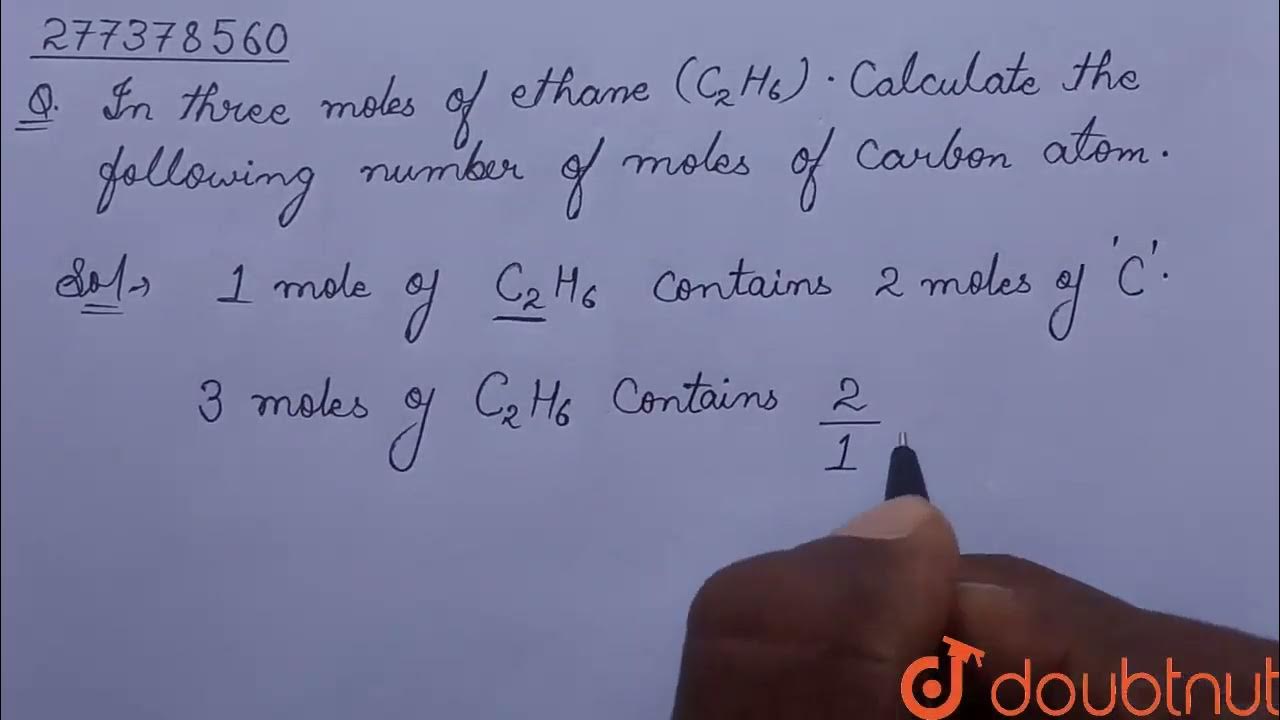 277378560
Q. In three moles of ethane (C₂H₆). Calculate the
following number of moles of carbon atom.
Sol→ 1 mole of C₂H₆ contains 2 moles of 'C'.
3 moles of C₂H₆ contains 2/1
doubtnut